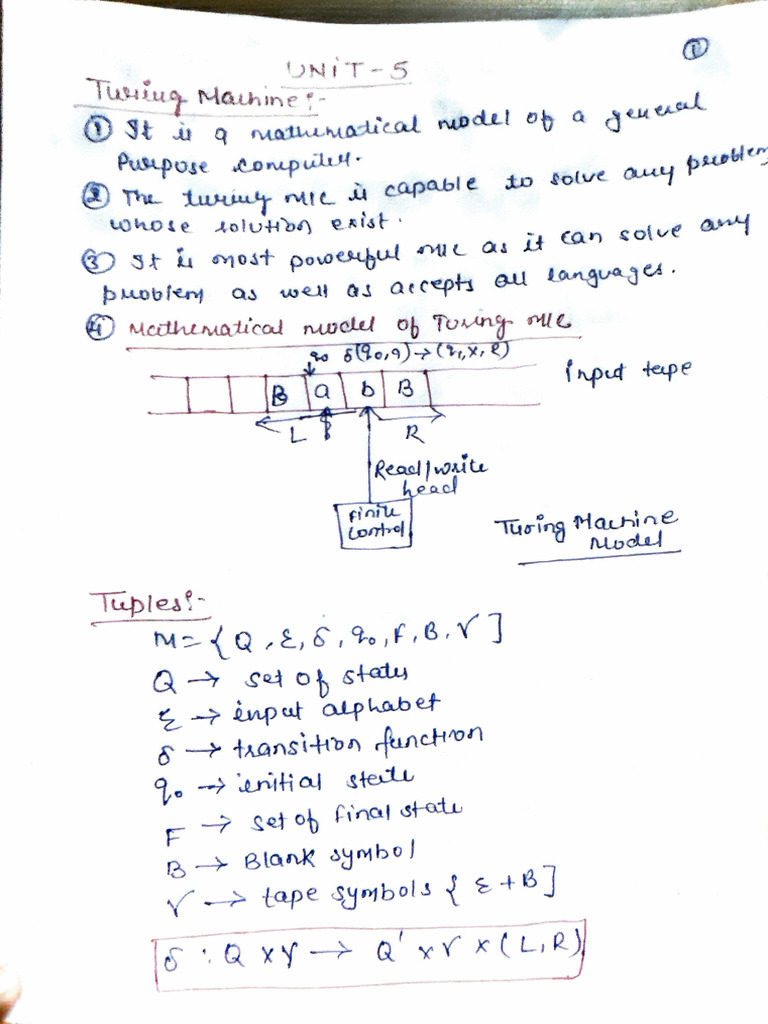 ①
UNIT-5
Turing Machine:-
① It is a mathematical model of a general
Purpose computer.
② The turing m/c is capable to solve any problem
whose solution exist.
③ It is most powerful m/c as it can solve any
problem as well as accepts all languages.
④ Mathematical model of Turing m/c
q₀ δ(q₀,a)→(q₁,x,R)
B a b B input tape
L R
Read/write
head
finite
control
Turing Machine
Model
Tuples:-
M={Q, Σ, δ, q₀, F, B, γ]
Q → set of states
Σ → input alphabet
δ → transition function
q₀ → initial state
F → set of final state
B → Blank symbol
γ → tape symbols { Σ + B ]
δ : Q × γ → Q' × γ × (L, R)